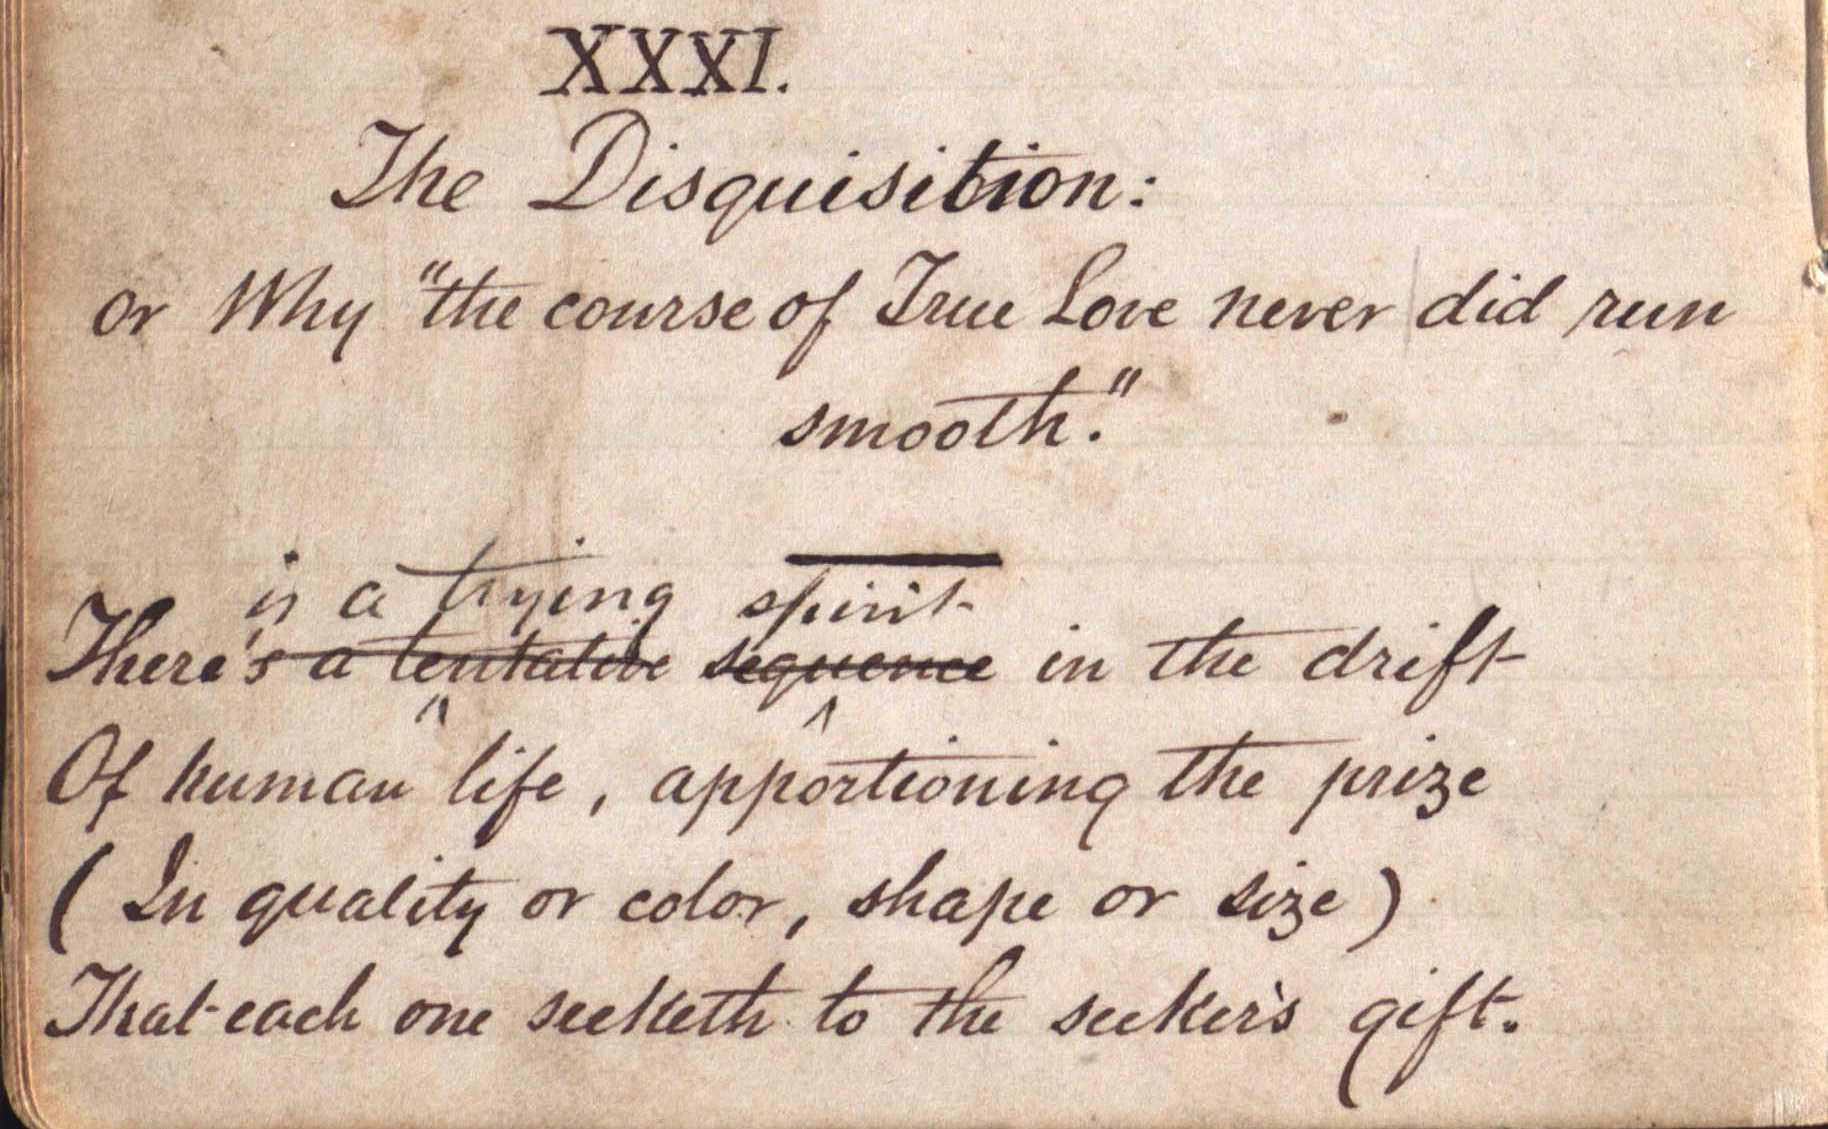 XXXI.
The Disquisition:
or Why "the course of True Love never did run
smooth."
is a trying spirit
There's a tentative sequence in the drift
Of human life, apportioning the prize
(In quality or color, shape or size)
That each one seeketh to the seeker's gift.